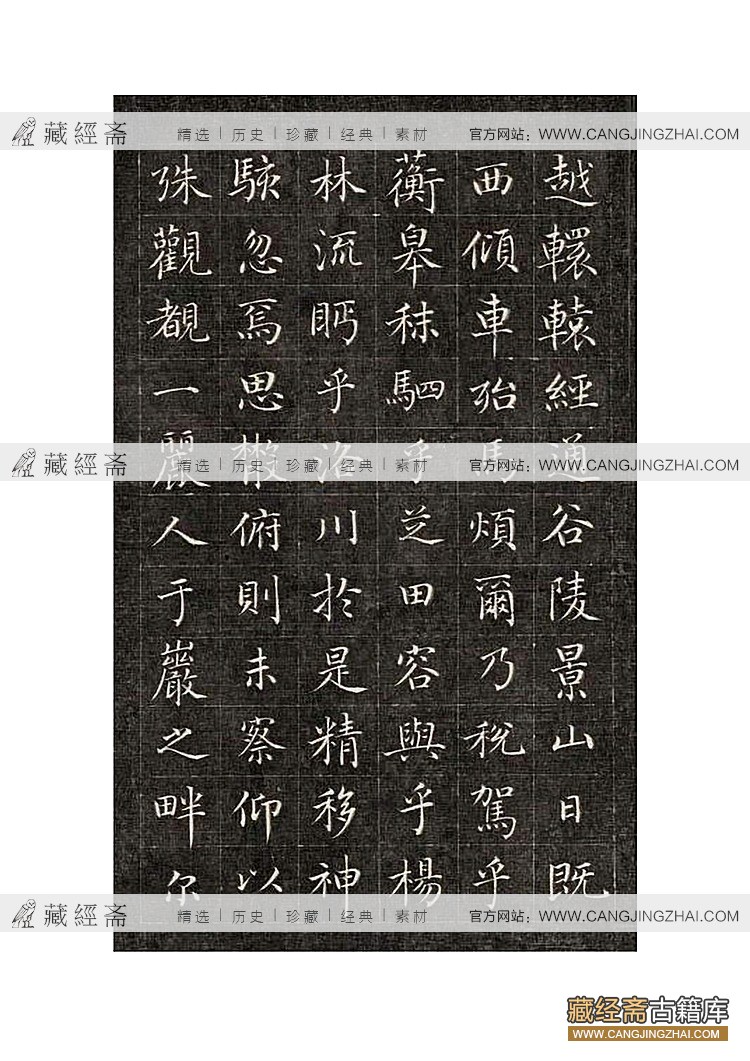 藏經斋 精选 | 历史 | 珍藏 | 经典 | 素材 官方网站：WWW.CANGJINGZHAI.COM
越轘轅經通谷陵景山日既
西傾車殆馬煩爾乃稅駕乎
蘅皋秣駟乎芝田容與乎楊
林流眄乎洛川於是精移神
駭忽焉思散俯則未察仰以
殊觀覩一麗人于巖之畔尔
藏經斋 精选 | 历史 | 珍藏 | 经典 | 素材 官方网站：WWW.CANGJINGZHAI.COM
藏經斋 精选 | 历史 | 珍藏 | 经典 | 素材 官方网站：WWW.CANGJINGZHAI.COM
藏经斋古籍库
WWW.CANGJINGZHAI.COM